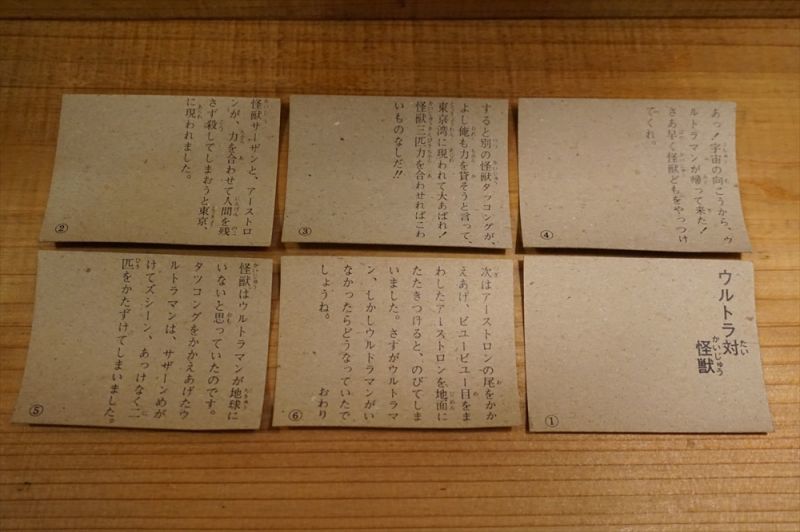 ウルトラ対
怪獣
①
怪獣サーザンと、アーストロ
ンが、力を合わせて人間を残
さず殺してしまおうと東京、
に現われました。
②
すると別の怪獣タッコングが、
よし俺も力を貸そうと言って、
東京湾に現われて大あばれ!
怪獣三匹力を合わせればこわ
いものなしだ!!
③
あっ!宇宙の向こうから、ウ
ルトラマンが帰って来た!
さあ早く怪獣どもをやっつけ
てくれ。
④
怪獣はウルトラマンが地球に
いないと思っていたのです。
タツコングをかかえあげたウ
ルトラマンは、サザーンめが
けてズシーン、あっけなく二
匹をかたずけてしまいました。
⑤
次はアーストロンの尾をかか
えあげ、ビユービユー目をま
わしたアーストロンを地面に
たたきつけると、のびてしま
いました。さすがウルトラマ
ン、しかしウルトラマンがい
なかったらどうなっていたで
しょうね。
おわり
⑥